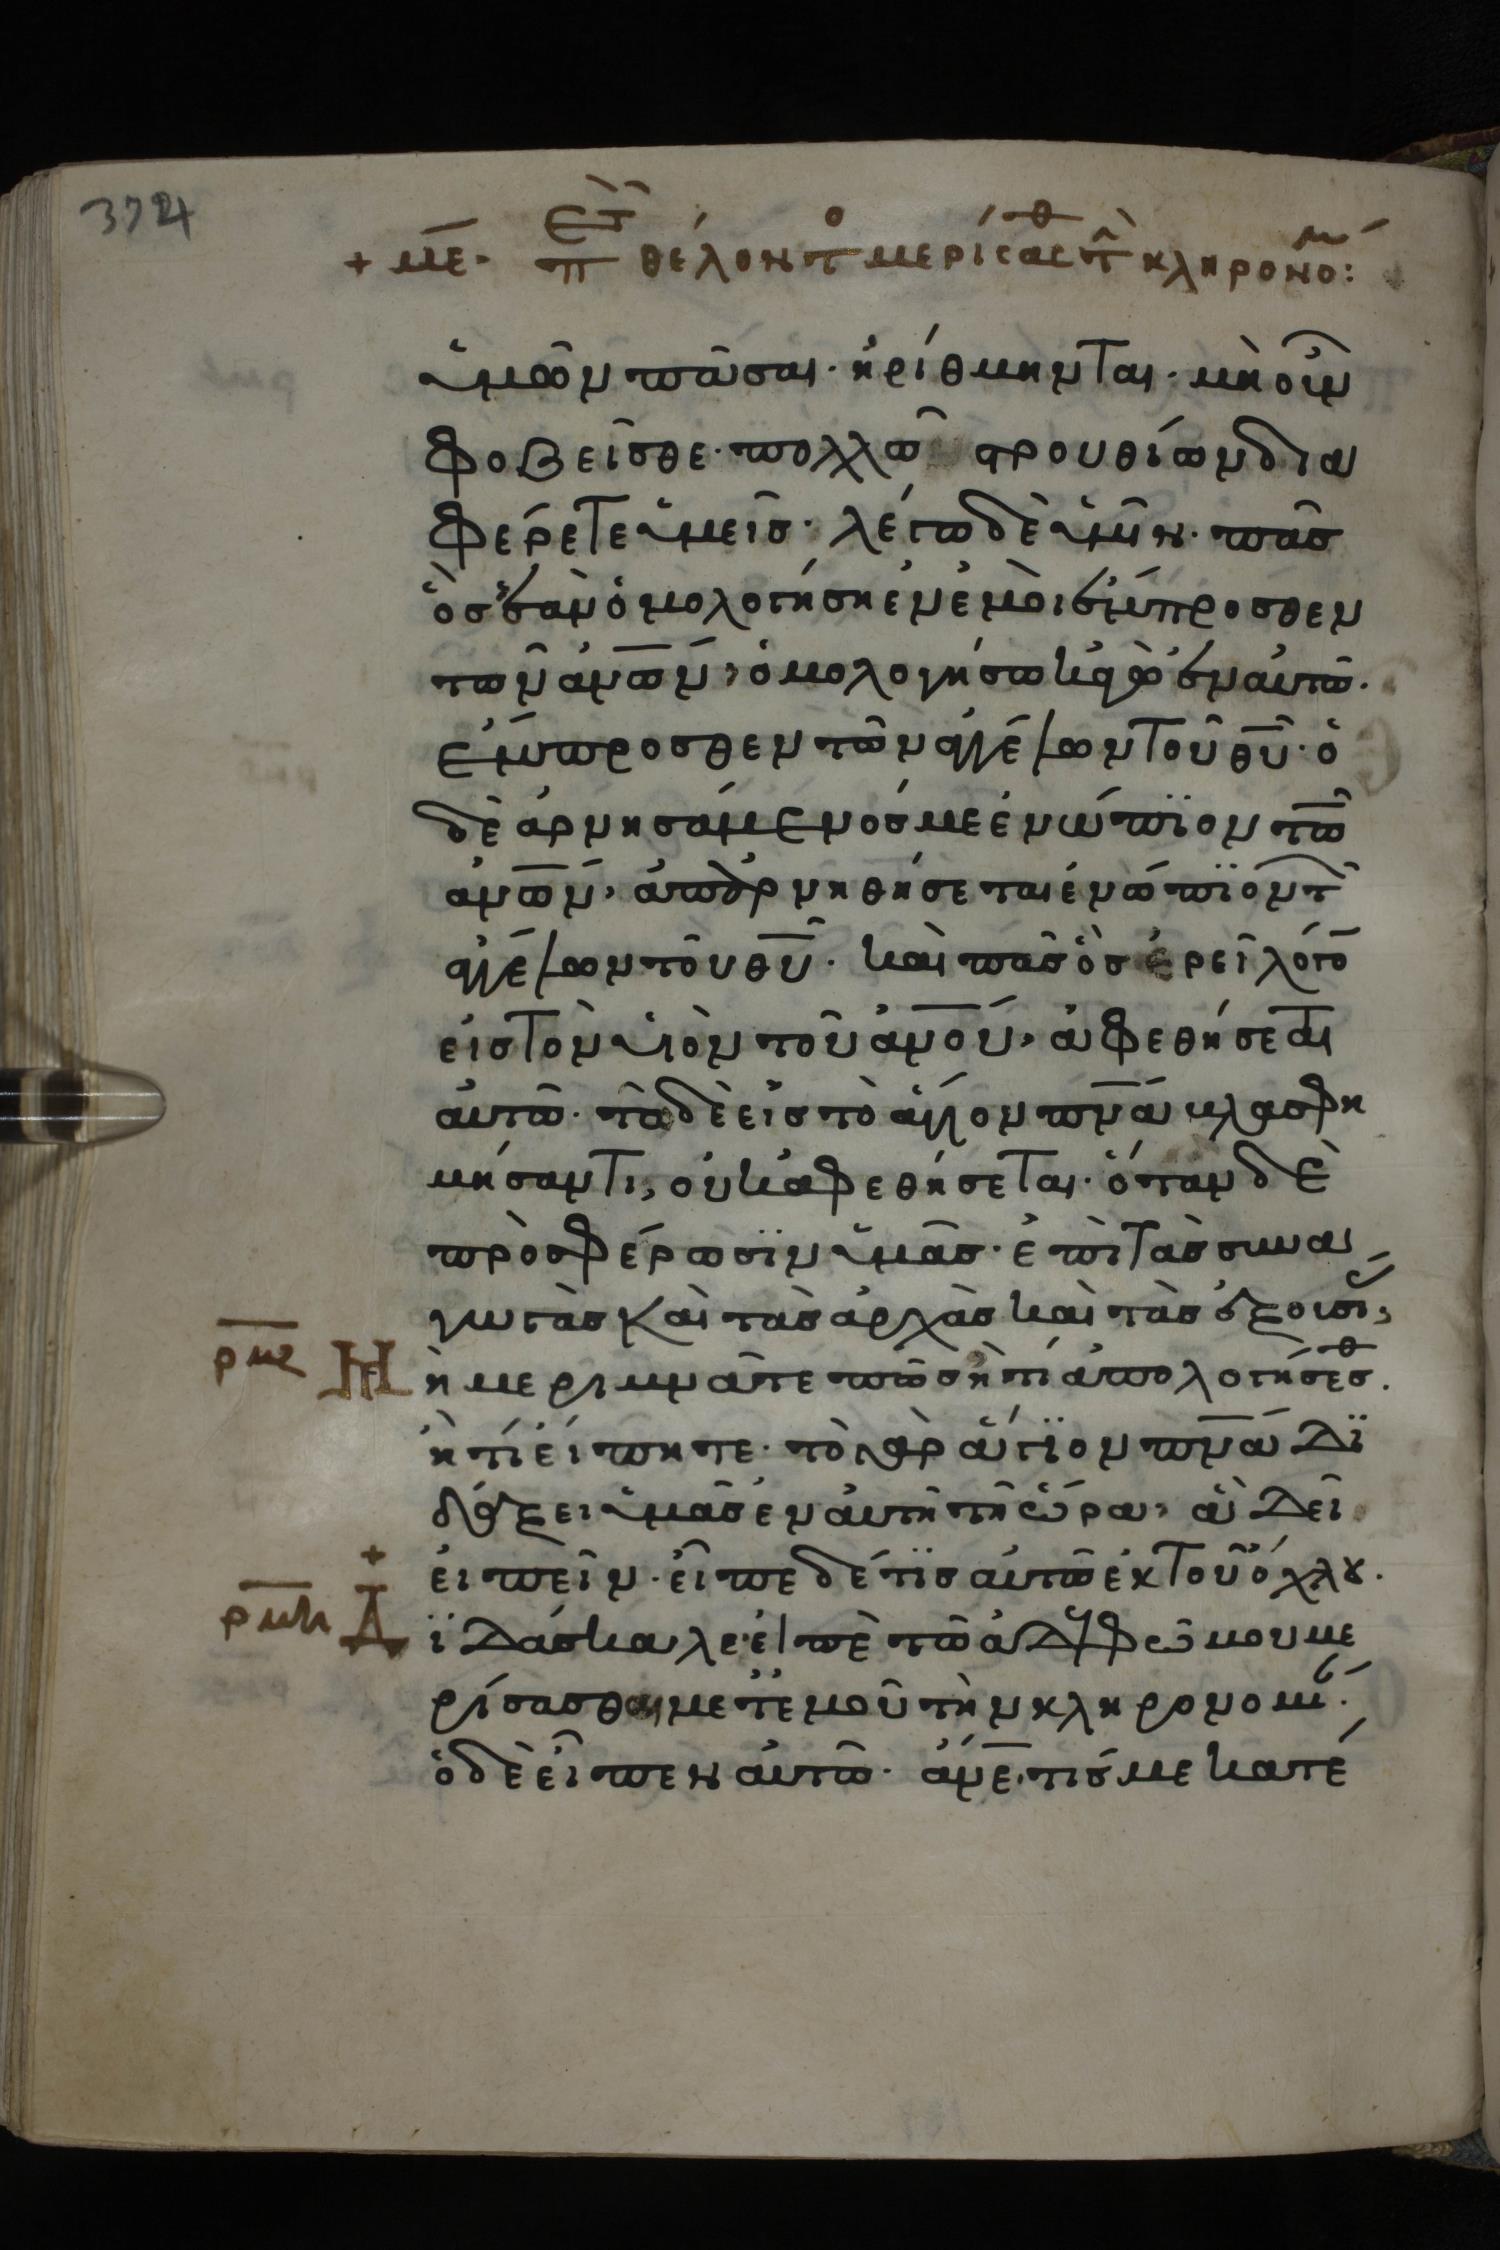 374
+ με· περὶ τ θέλοντο μερίσασθ τ κληρονομ:
ὑμῶν πᾶσαι· ἠρίθμηνται· μὴ οὖν
φοβεῖσθε· πολλῶ στρουθίων δια
φέρετε ὑμεῖς· λέγω δὲ ὑμῖν· πᾶς
ὃς ἐὰν ὁμολογήση ἐν ἐμοὶ ἔμπροσθεν
τῶν ἀνων, ὁμολογήσω κἀγὼ ἐν αὐτῶ·
ἔμπροσθεν τῶν ἀγγέλων τοῦ θυ· ὁ
δὲ ἀρνησάμενός με ἐνώπϊον τῶ
ἀνων, ἀπαρνηθήσεται ἐνώπϊον τ
ἀγγέλων τοῦ θυ· καὶ πᾶς ὃς ἐρεῖ λόγο
εἰς τὸν υἱὸν τοῦ ἀνου, ἀφεθήσεται
αὐτῶ· τῶ δὲ εἰς τὸ ἅγιον πνα βλασφη
μήσαντι, οὐκ ἀφεθήσεται· ὅταν δὲ
πρὸσφέρωσϊν ὑμᾶς· ἐπὶ τὰς συνα
γωγὰς καὶ τὰς ἀρχὰς καὶ τὰς ἐξουσί,
ρμζ Μ
ὴ μεριμνᾶτε πῶς ἢ τί ἀπολογήσεσθ·
ἢ τί εἴπητε· τὸ γὰρ ἅγϊον πνα Δϊ
δάξει ὑμᾶς ἐν αὐτῆ τῆ ὥρα, ἃ Δεῖ
εἰπεῖν· εἶπε δέ τϊς αὐτῶ ἐκ τοῦ ὄχλου·
ρμη + Δ
ϊΔάσκαλε· εἰπὲ τῶ ἀΔελφῶ μου με
ρίσασθαι μετ' ἐμοῦ τὴν κληρονομί·
ὁ δὲ εἶπεν αὐτῶ· ἄνε, τίς με κατέ